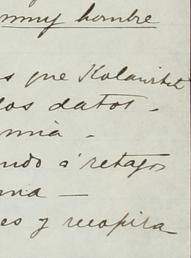 muy hombre
s que Kolawitet
los datos.
mia.
ndo á retazos
ma —
es y recopila